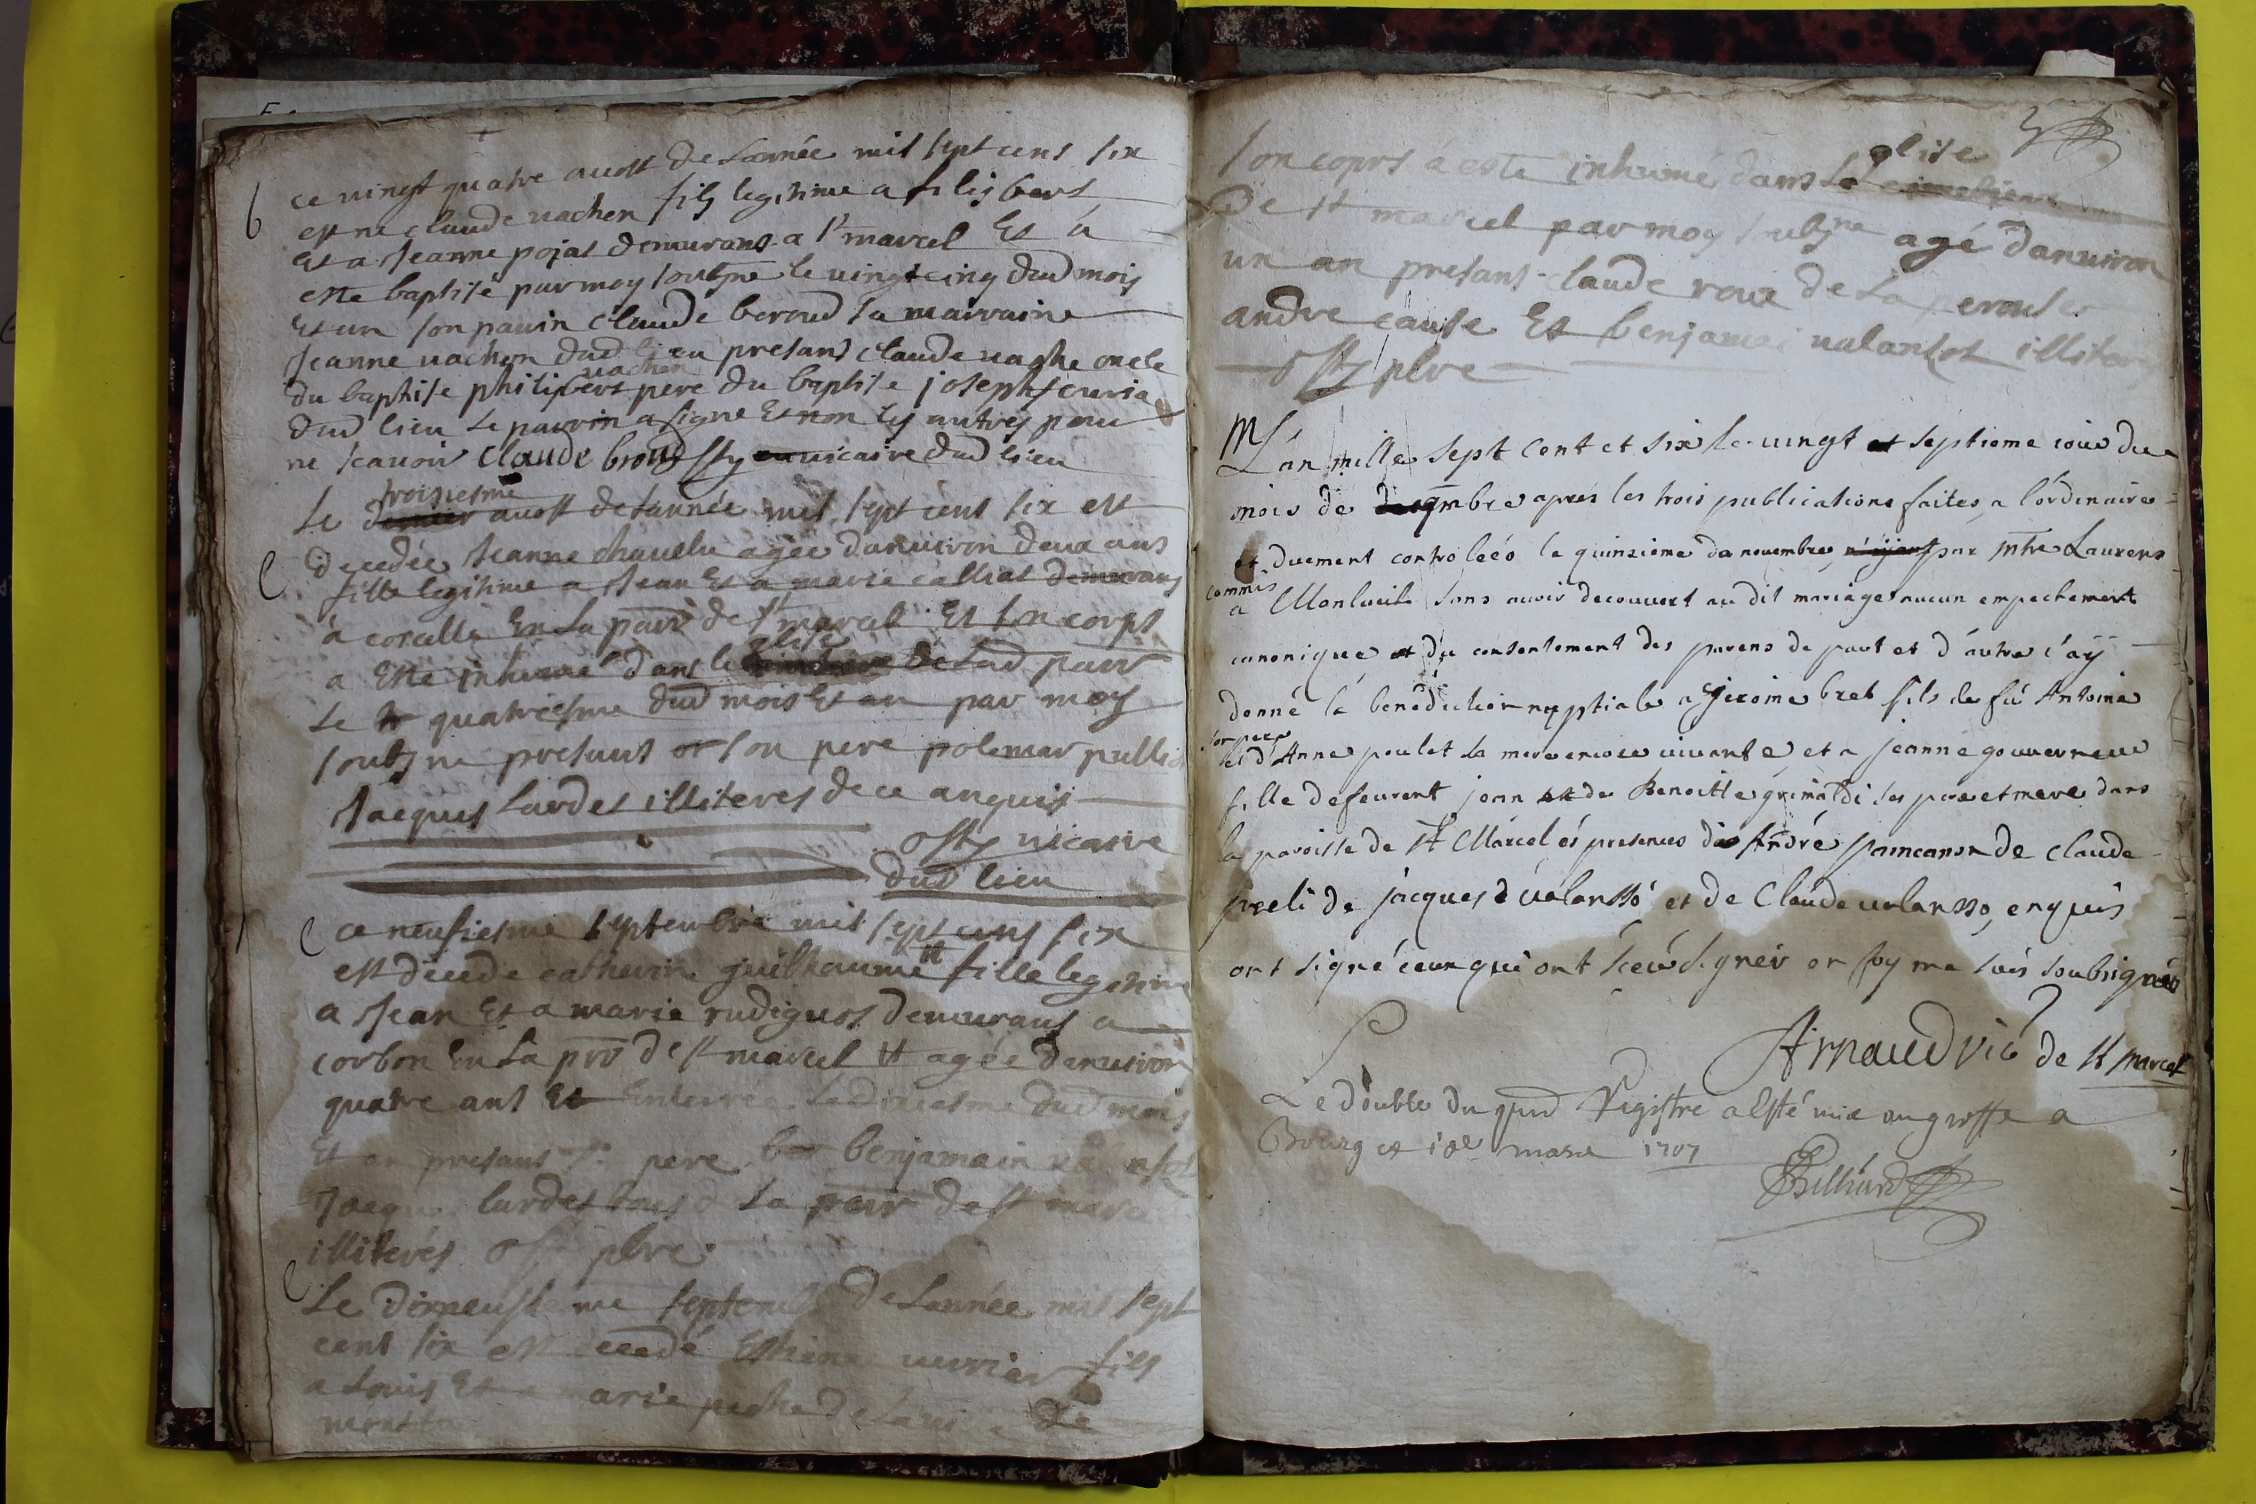 b
ce vingt quatre aoust de Lannée mil sept cens six
est ne claude vachen fils legitime a filisbert
Et a Jeanne pojat demurans a st marcel Et á
este baptisé par moy soubsne le vingt cinq dud mois
Et an son pauin claude beroud sa mairaine
Jeanne vachon dud lieu presans claude vashe oncle
vachen
du baptise philipbert pere du baptise joseph
dud lieu Le parrin a signe Et non les autres pour
ne scavoir claude broud osty vicaire dud lieu
troisiesme
Le dernier aoust de Lannée mil sept cens six est
decedée Jeanne chavelu agée danuiron deux ans
fille legitime a Jean Et a marie calliat demurans
á corcelle En La parr de st marcel Et son corps
glise
a Este inhumé dans le de Lad parr
Le quatriesme dud mois Et an par moy
soubsne presans son pere polemar
Jacques Lardet illiteres de ce anquis
osty vicaire
dud lieu
ce neufiesme septembre mil sept cens six
est decede catherine guilliaume fille legitime
a Jean Et a marie rudiguos demurans a
corbon En La prr de st marcel agée danuiron
quatre ans Et Enterrée Le dixiesme dud mois
Et an presans sn pere benjamain
Jacque Lardet tous d La parr de st marcel
illiterés osty pbre
Le dixneufieme septembre de Lannée mil sept
cent six est decedé Estiene verrier fils
a Louis Et a marie de
son coprs á esté inhumé dans Le glise
De st marcel par moy soubsne agé danuiron
un an presans claude roux de La perouse
andre cause Et benjamei valansot illiteres
osty pbre
M
L'an mille sept cent et six le vingt et septieme iour du
mois de 9mbre apres les trois publications faites a l'ordinaire
et duement controleés le quinzieme de novembre par mtre Laurens
commis
a Monluel sans avoir decouvert au dit mariage aucun empechement
canonique et du consentement des parens de part et d'autre i'aÿ
donné la benediction nuptiale a Jerome bret fils de fu Antoine
son pere
et d'Anne poulet sa mere encore vivante et a jeanne gouverneur
fille de feurent jean et de Benoitte grimaldi ses pere et mere dans
la paroisse de st Marcel és presences de André pamcanon de claude
de jacques valansó et de Claude valanso, enquis
ont signé ceux qui ont sceu signer en foy me suis soubsigné
Arnaud vic de st Marcel
Le double du prnd Registre a Esté mis au greffe a
Bourg ce 10e mars 1707
Billiard